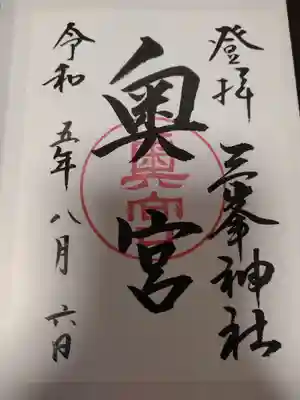 登拝 三峯神社
奥宮
奥宮
令和五年八月六日